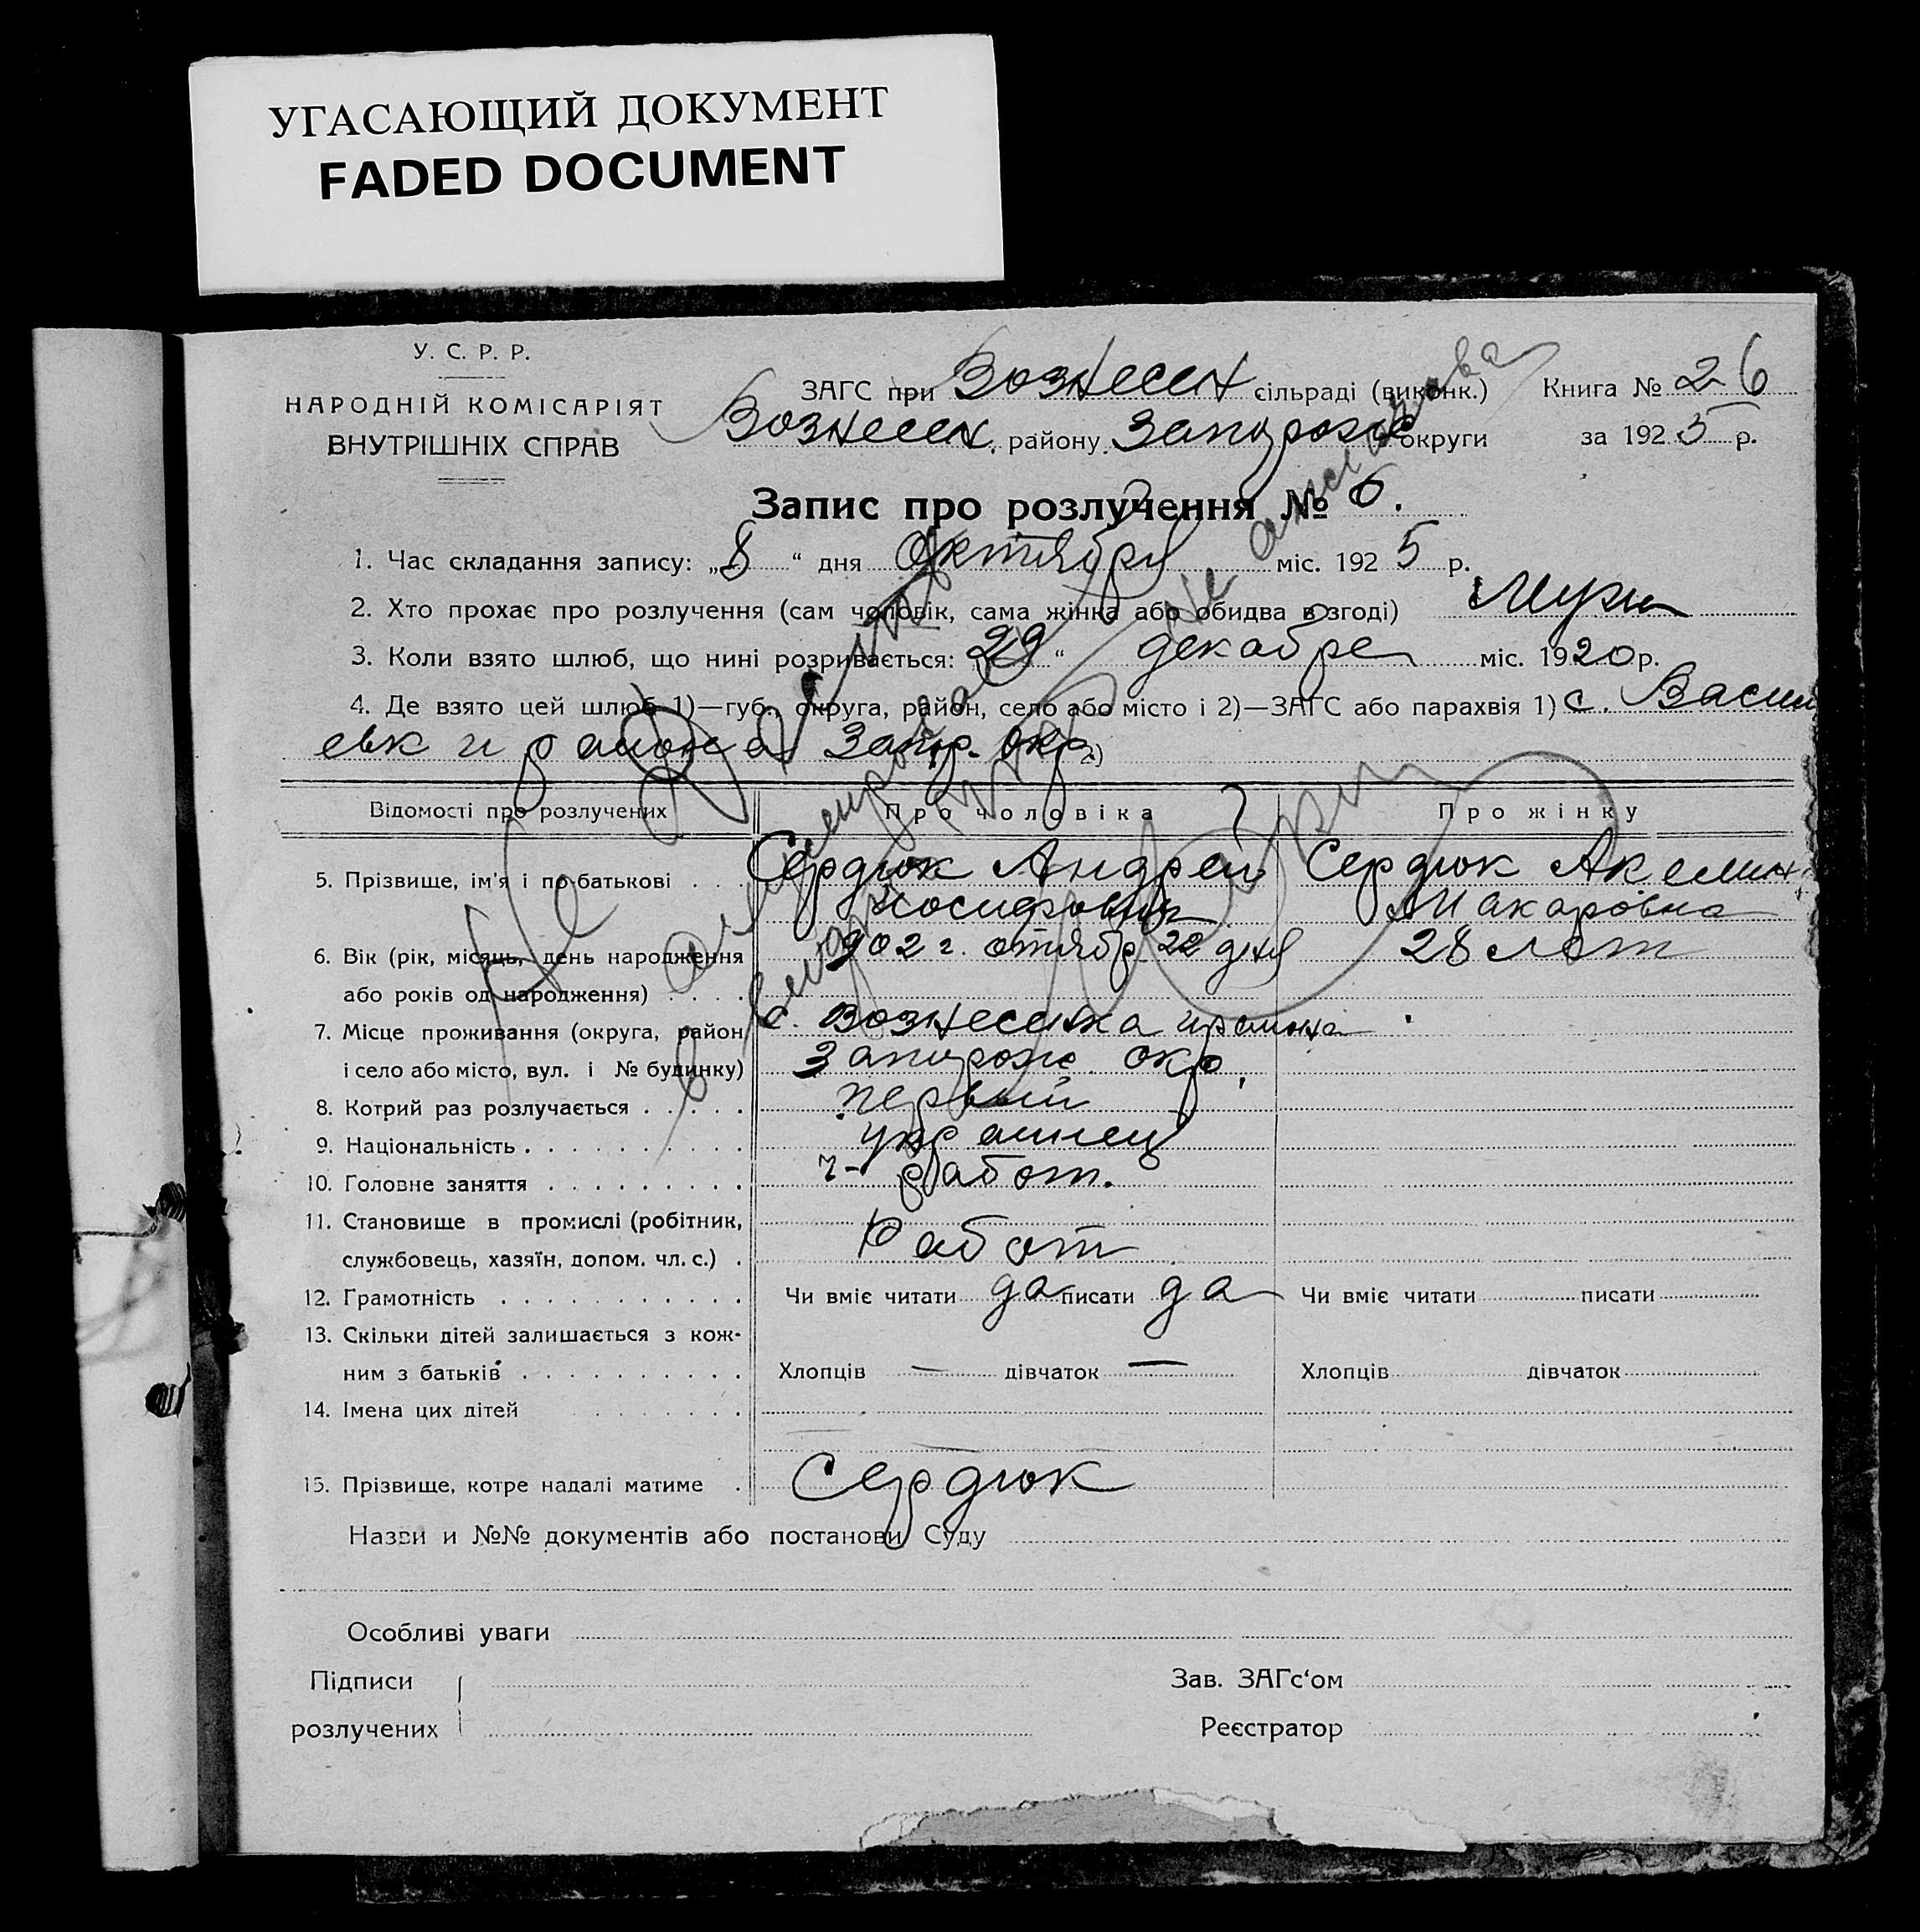 УГАСАЮЩИЙ ДОКУМЕНТ
FADED DOCUMENT
У. С. Р. Р.
НАРОДНІЙ КОМІСАРІЯТ
ВНУТРІШНІХ СПРАВ
ЗАГС при Вознесен сільраді (виконк.) Книга № 26
Вознесен. району Запорож округи за 1925 р.
Запис про розлучення № 6.
1. Час складання запису: „8“ дня октября міс. 1925 р.
2. Хто прохає про розлучення (сам чоловік, сама жінка або обидва в згоді)
3. Коли взято шлюб, що нині розривається: 29“ декабре міс. 1920 р.
4. Де взято цей шлюб 1)—губ., округа, район, село або місто і 2)—ЗАГС або парахвія 1) с. Васил
евк и района Запор. окр. 2)
Відомості про розлучених Про чоловіка Про жінку
5. Прізвище, ім'я і по-батькові Сердюк Андрей Сердюк Акелин
Иосифович Макаровна
6. Вік (рік, місяць, день народження 902 г. отябр 22 дня 28 лет
або років од народження)
7. Місце проживання (округа, район с. Вознесенка
і село або місто, вул. і № будинку) Запорож. окр.
8. Котрий раз розлучається первый
9. Національність украинец
10. Головне заняття ч-работ.
11. Становище в промислі (робітник,
службовець, хазяїн, допом. чл. с.) Работ
12. Грамотність Чи вміє читати да писати да Чи вміє читати писати
13. Скільки дітей залишається з кож-
ним з батьків Хлопців — дівчаток — Хлопців дівчаток
14. Імена цих дітей
15. Прізвище, котре надалі матиме Сердюк
Назви и №№ документів або постанови Суду
Особливі уваги
Підписи Зав. ЗАГс'ом
розлучених Реєстратор